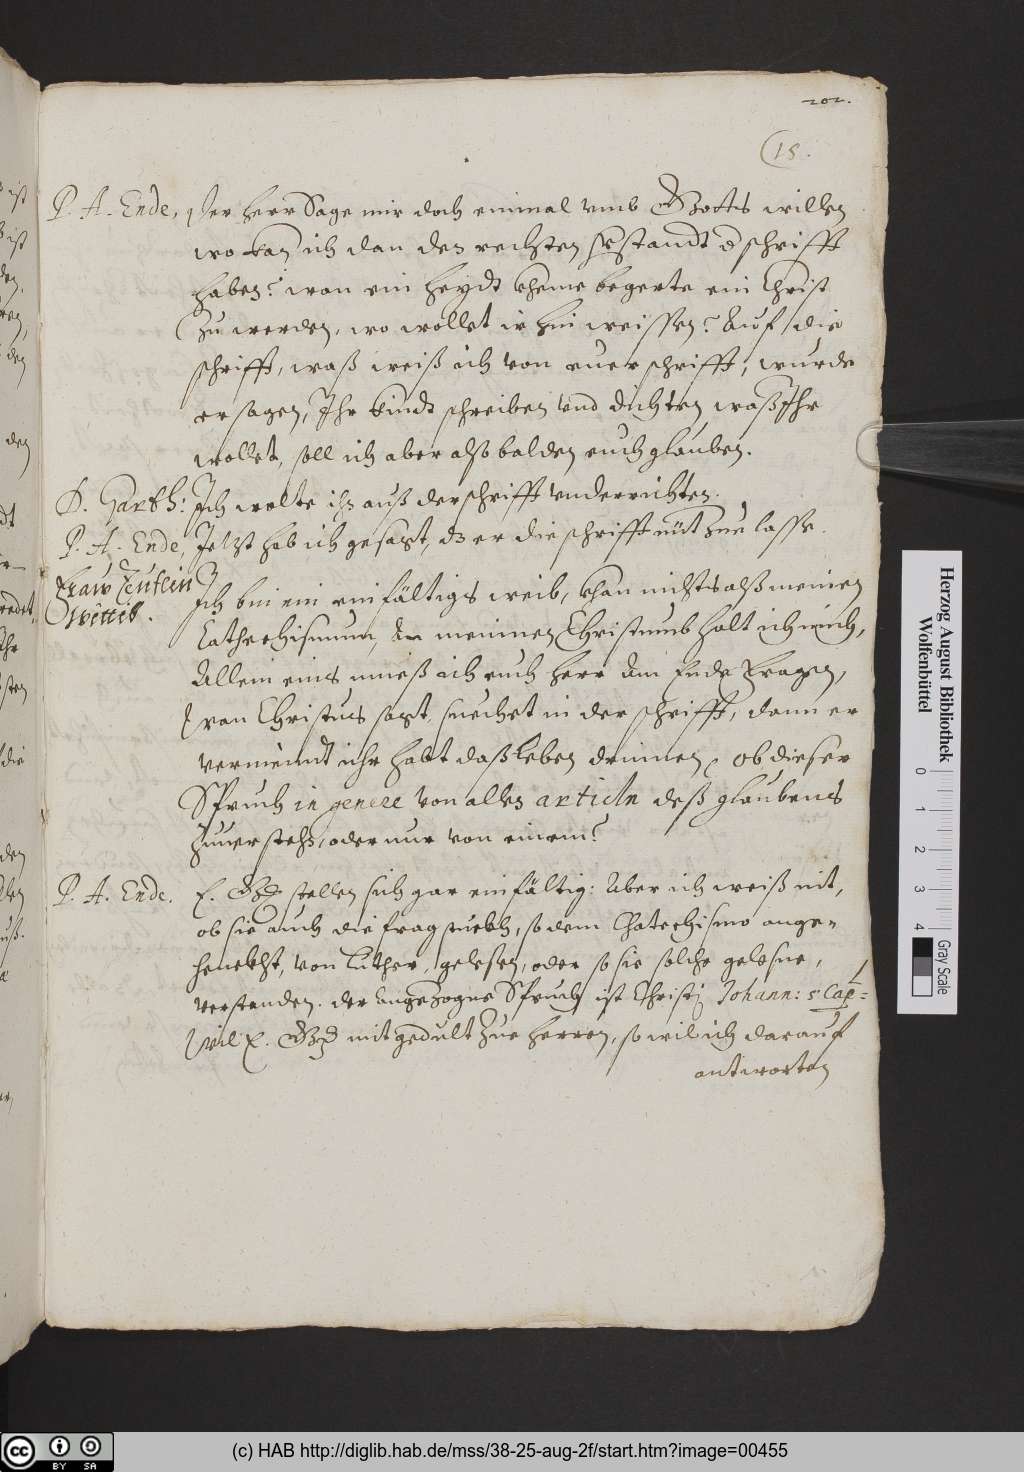 202.
(15.
P. A. Ende, Der Herr Sage mir doch einmal vmb Gottes willen
wo kan ich dan den rechten verstandt d schrifft
haben? wan ein Heydt kheme begerte ein Christ
zu werden, wo wollet ir hin weissen? Auf die
schrifft, waß weiß ich von euer schrifft, wurde
er sagen, Ihr kindt schreiben vnd dichten waß Ihr
wollet, soll ich aber alsobalden euch glauben.
D. Garth: Ich wolte ihn auß der schrifft vnderrichten.
P. A. Ende, Jetzt hab ich gesagt, dz er die schrifft nit zue lasse.
Fraw Teuflin
Wittib.
Ich bin ein einfältigs weib, khan nichts alß meinen
Cathechismum, An meinen Christum halt ich mich,
Allein eins mueß ich euch Herr Am Ende Fragen,
wan Christus sagt, suechet in der schrifft, dann er
vermeindt ihr habt daß Leben drinnen, ob dieser
Spruch in genere von allen articln deß glaubens
Zuuerstehn, oder nur von einem?
P. A. Ende. E. Gn stellen sich gar einfältig: Aber ich weiß nit,
ob sie auch die frag stuckh, so dem Chatechismo ange-
henckht, von Luther, gelesen, oder so sie solche gelesne,
verstanden. der Angezogne Spruch ist Christj Johann: 5 Cap:
Wil E. Gn mit gedult Zue herren, so wil ich darauf
antworten
den
die
sten
Herzog August Bibliothek
Wolfenbüttel
0 1 2 3 4
Gray Scale
cc BY SA
(c) HAB http://diglib.hab.de/mss/38-25-aug-2f/start.htm?image=00455